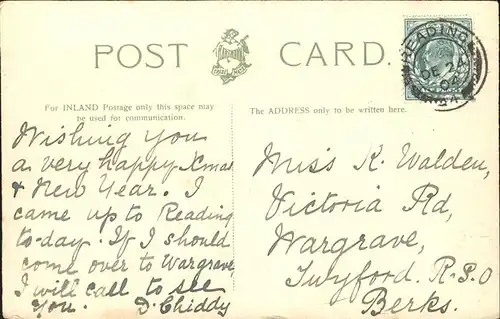 POST CARD.
READING
DE 24
For INLAND Postage only this space may
be used for communication.
The ADDRESS only to be written here.
Wishing you
a very happy Xmas
& New Year. I
came up to Reading
to-day. If I should
come over to Wargrave
I will call to see
you. D. Chiddy
Miss K. Walden,
Victoria Rd,
Wargrave,
Twyford. R.S.O
Berks.